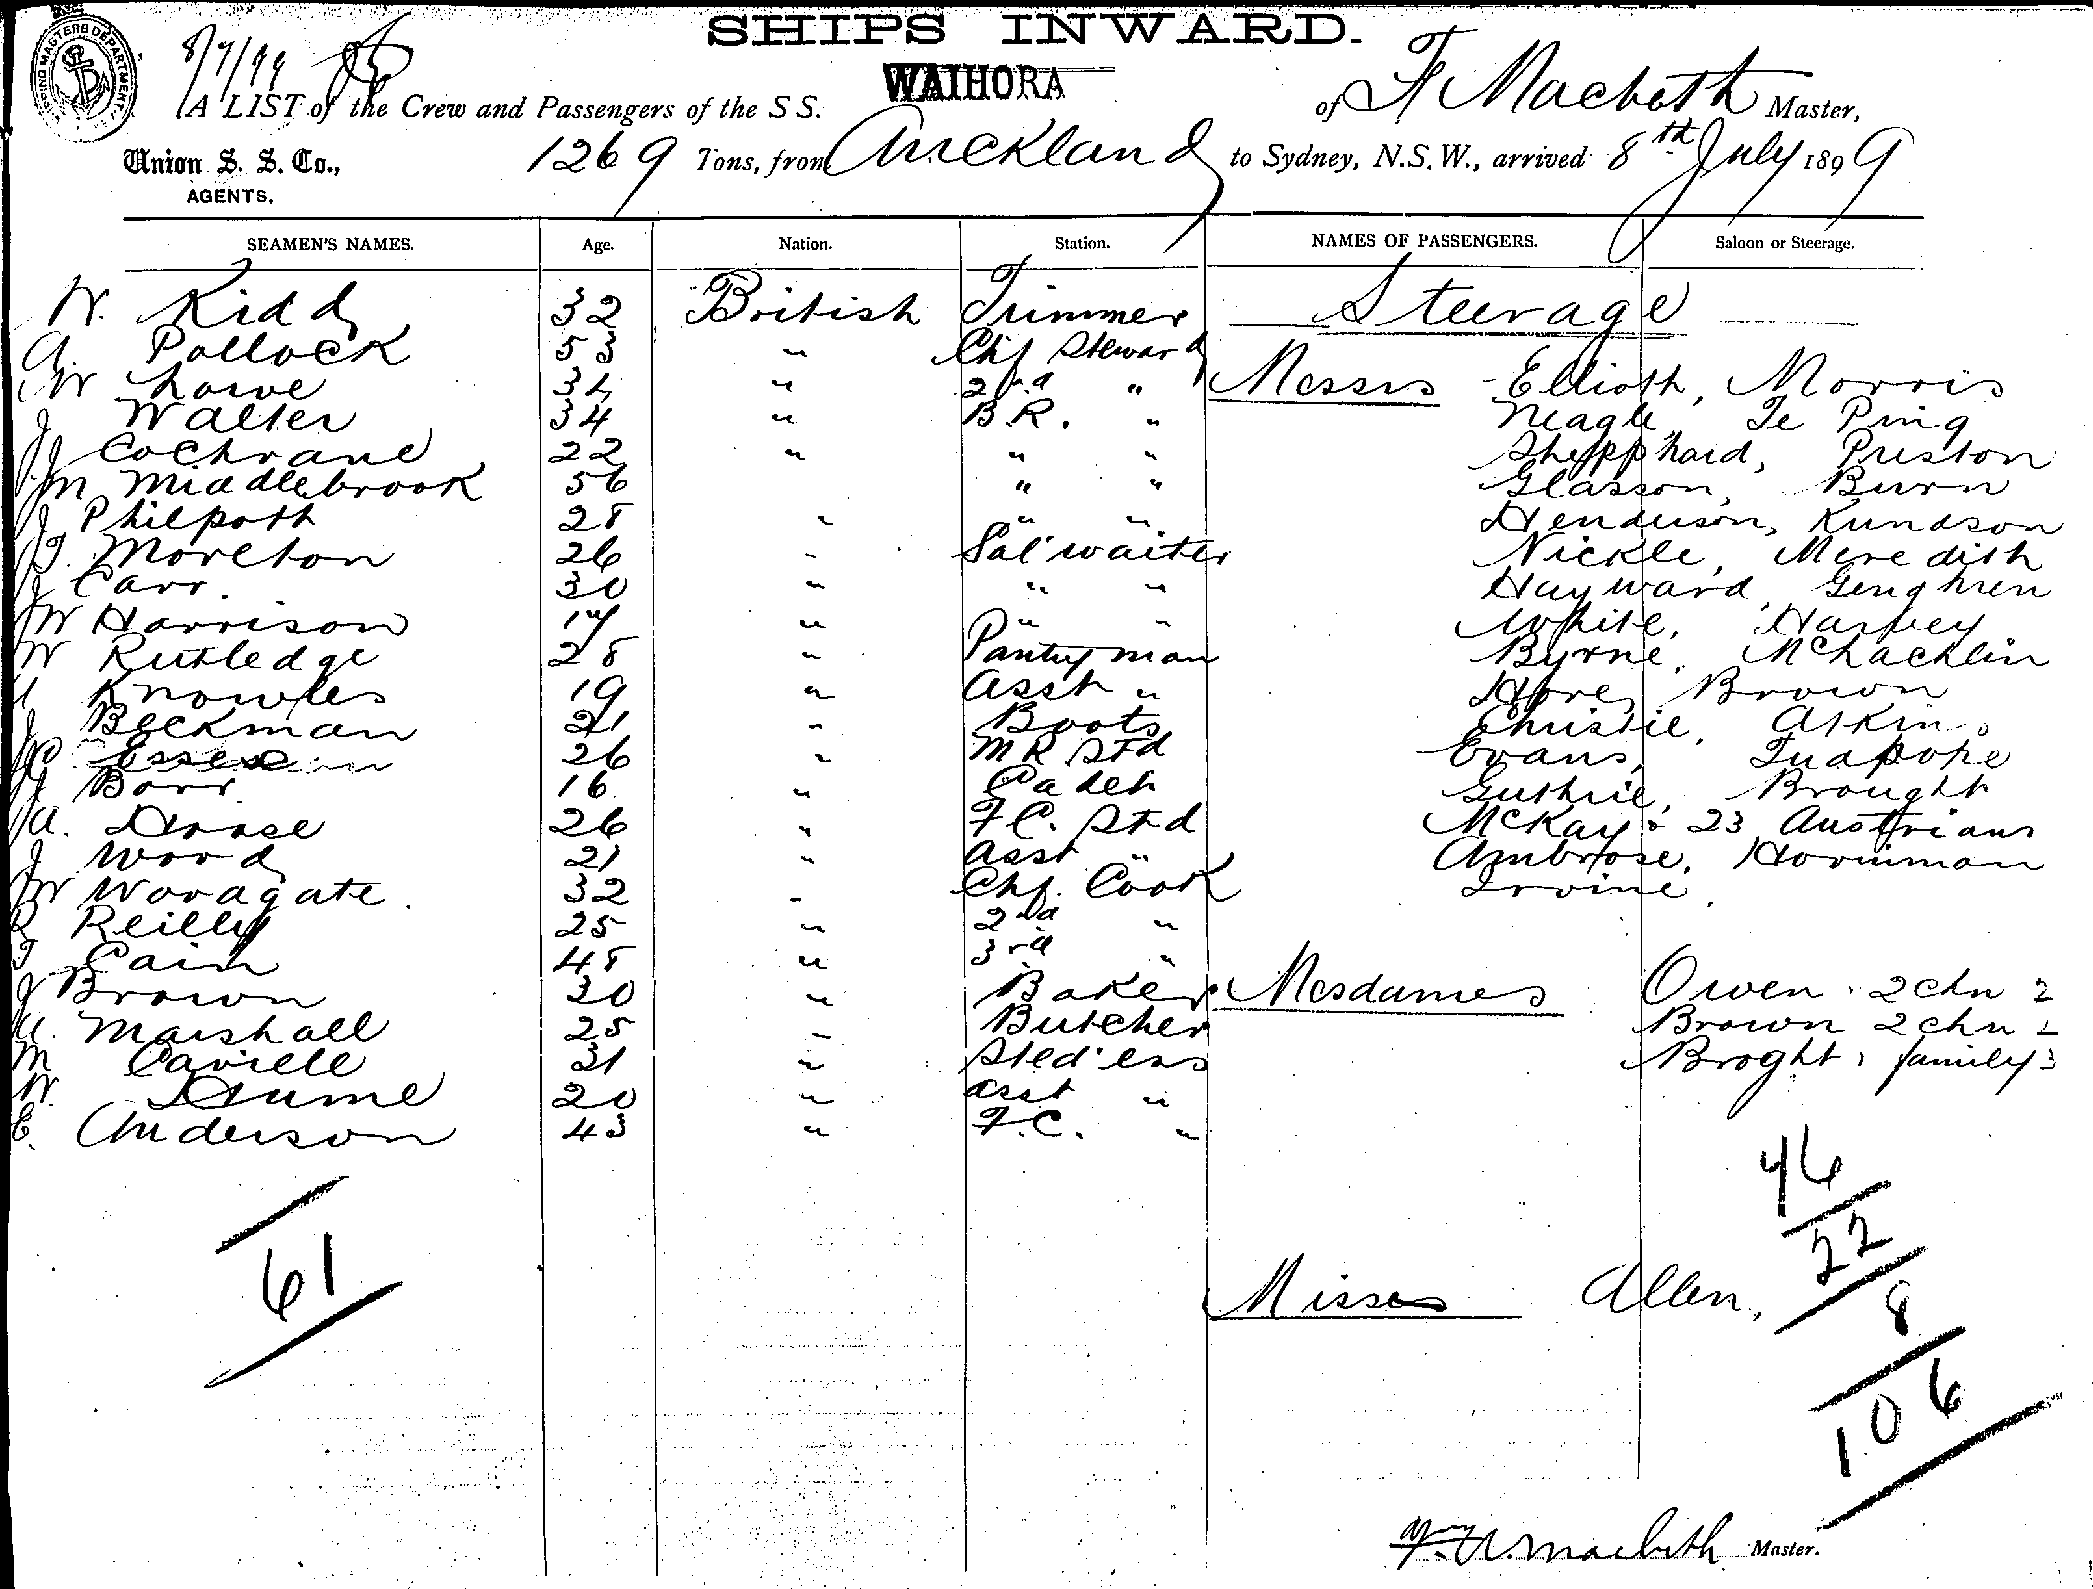 SHIPS INWARD.
8/7/99
WAIHORA
A LIST of the Crew and Passengers of the S S. of F Macbeth Master,
Union S. S. Co., 1269 Tons, from Auckland to Sydney, N.S.W., arrived 8th July 1899
AGENTS.
SEAMEN'S NAMES. Age. Nation. Station. NAMES OF PASSENGERS. Saloon or Steerage.
W. Kidd 32 British Trimmer Steerage
A. Pollock 53 " Chf Steward
W Lowe 34 " 2nd " Messrs Elliott, Morris
J Walter 34 " B R. " Neagle, Te Ping
J Cochrane 22 " " " Shepphard, Preston
M Middlebrook 56 " " Glasson, Burn
J Philpott 28 " " " Henderson, Kundson
J. Moreton 26 " Sal waiter Nickle, Meredith
J Carr. 30 " " " Hayward, Genghren
W Harrison 17 " " " White, Harvey
W Rutledge 28 " Pantryman Byrne, McLachlin
Knowles 19 " Asst " Hore, Brown
J Beckman 21 " Boots Christie, Atkins
Essex 26 " M R Std Evans,
J Barr 16 " Cadet Guthrie, Brought
A. Hoase 26 " F C. Std McKay & 23 Austrians
J Wood 21 " Asst " Ambrose, Horniman
W Woragate. 32 " Chf. Cook Irvine.
Reilly 25 " 2nd "
Cain 48 " 3rd "
J Brown 30 " Baker Mesdames Owen 2 chn 2
A. Marshall 25 " Butcher Brown 2 chn 2
M Cavielle 31 " Sted'ess Broght, family 3
W. Hume 20 " asst "
E. Anderson 43 " F.C. "
46
22
61
Misses Allen,
8
106
Macbeth Master.